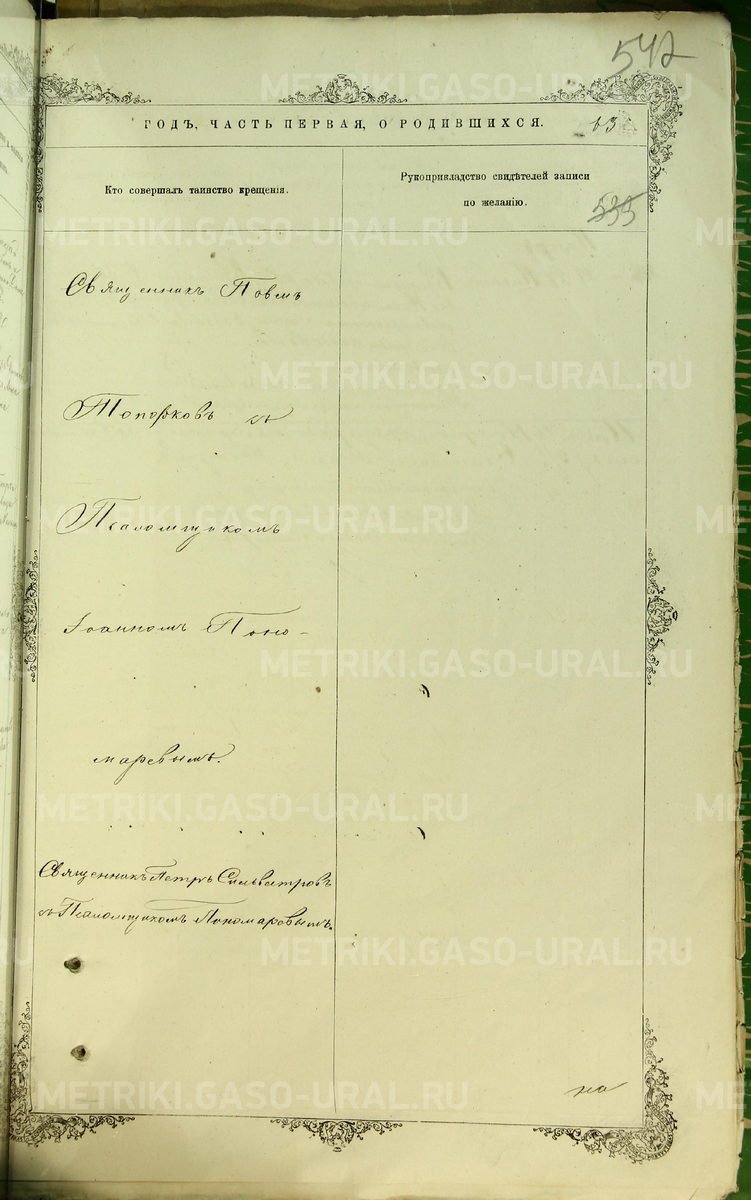 542
ГОДЪ, ЧАСТЬ ПЕРВАЯ, О РОДИВШИХСЯ.
Кто совершалъ таинство крещенія.
Рукоприкладство свидѣтелей записи
по желанію.
535
Священникъ Павелъ
Топорковъ съ
Псаломщикомъ
Іоанномъ Поно-
маревымъ.
Священникъ Петръ Сильвестровъ
съ Псаломщикомъ Пономаревымъ.
на
METRIKI.GASO-URAL.RU